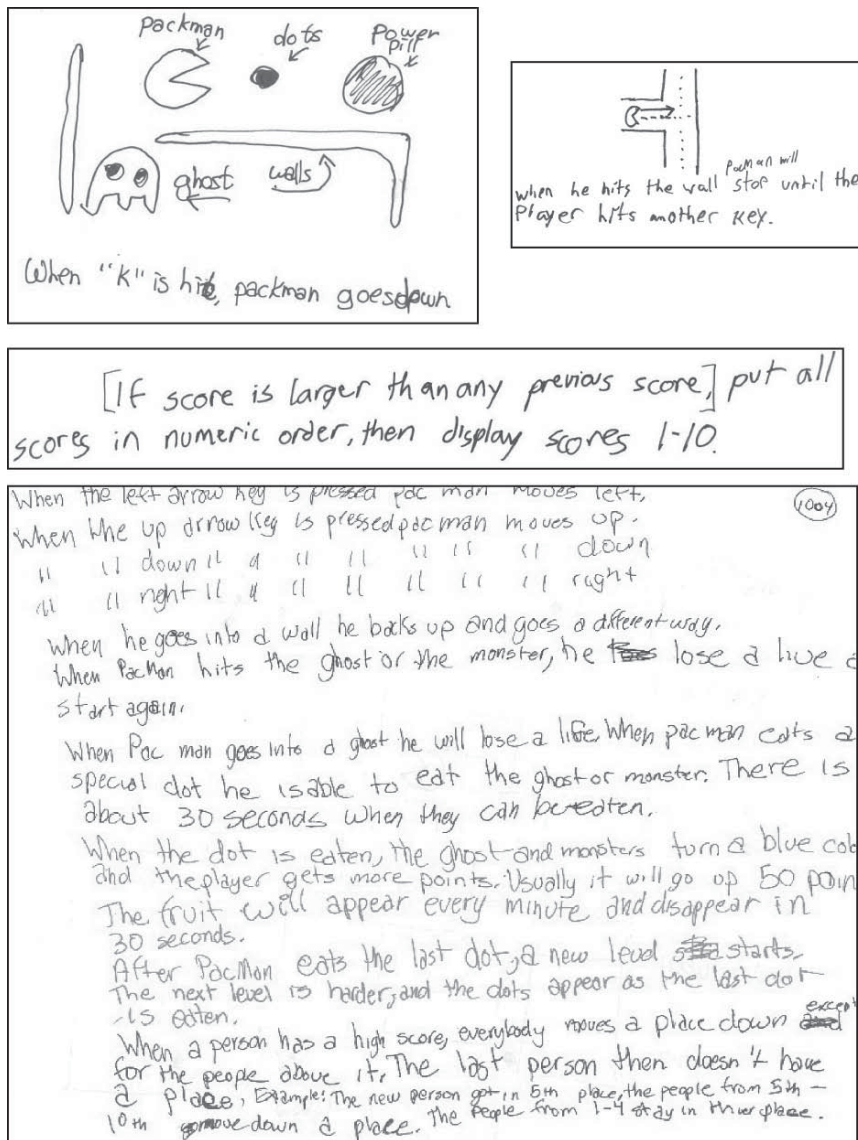 packman
dots
Power
pill
ghost
walls
When "K" is hit, packman goes down
pacman will
when he hits the wall stop until the
Player hits another key.
[If score is larger than any previous score,] put all
scores in numeric order, then display scores 1-10.
When the left arrow key is pressed pac man moves left.
1004
When the up arrow key is pressed pac man moves up.
" " down " " " " " " " down
" " right " " " " " " " right
When he goes into a wall he backs up and goes a different way.
When PacMan hits the ghost or the monster, he lose a live
start again.
When Pac man goes into a ghost he will lose a life. When pac man eats a
special dot he is able to eat the ghost or monster. There is
about 30 seconds when they can be eaten.
When the dot is eaten, the ghost and monsters turn a blue
and the player gets more points. Usually it will go up 50
The fruit will appear every minute and disappear in
30 seconds.
After PacMan eats the last dot, a new level starts.
The next level is harder, and the dots appear as the last dot
is eaten.
When a person has a high score, everybody moves a place down except
for the people above it. The last person then doesn't have
a place. Example: The new person got in 5th place, the people from 5th –
10th move down a place. The people from 1-4 stay in their place.